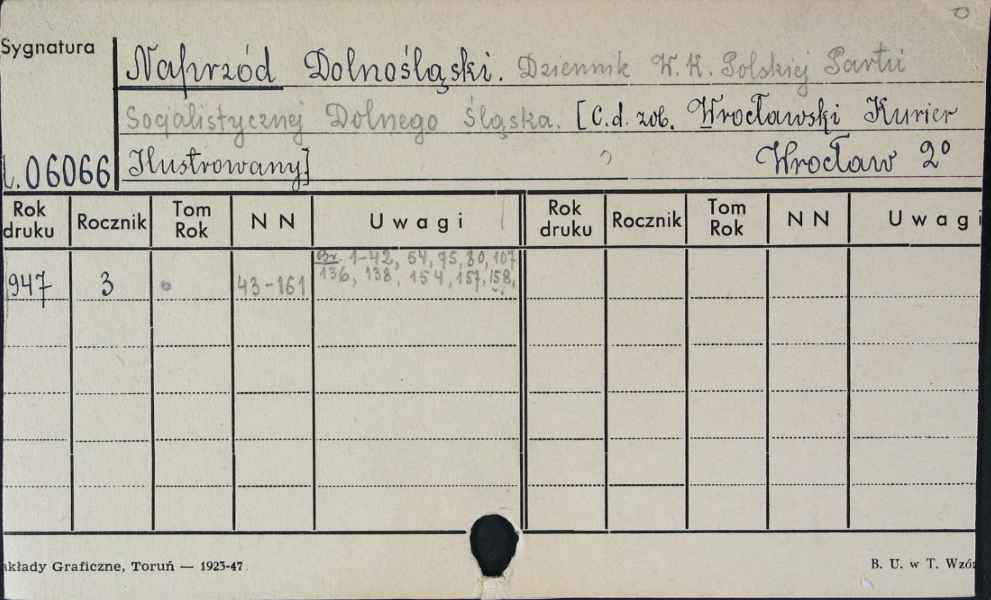 Sygnatura
Naprzód Dolnośląski. Dziennik W. K. Polskiej Partii
Socjalistycznej Dolnego Śląska. [C.d. zob. Wrocławski Kurier
06066 Ilustrowany] Wrocław 2°
Rok druku Rocznik Tom Rok N N Uwagi Rok druku Rocznik Tom Rok N N Uwagi
Br. 1-42, 54, 75, 80, 107
947 3 43-161 136, 138, 154, 157, 158,
akłady Graficzne, Toruń — 1923-47 B. U. w T. Wzó